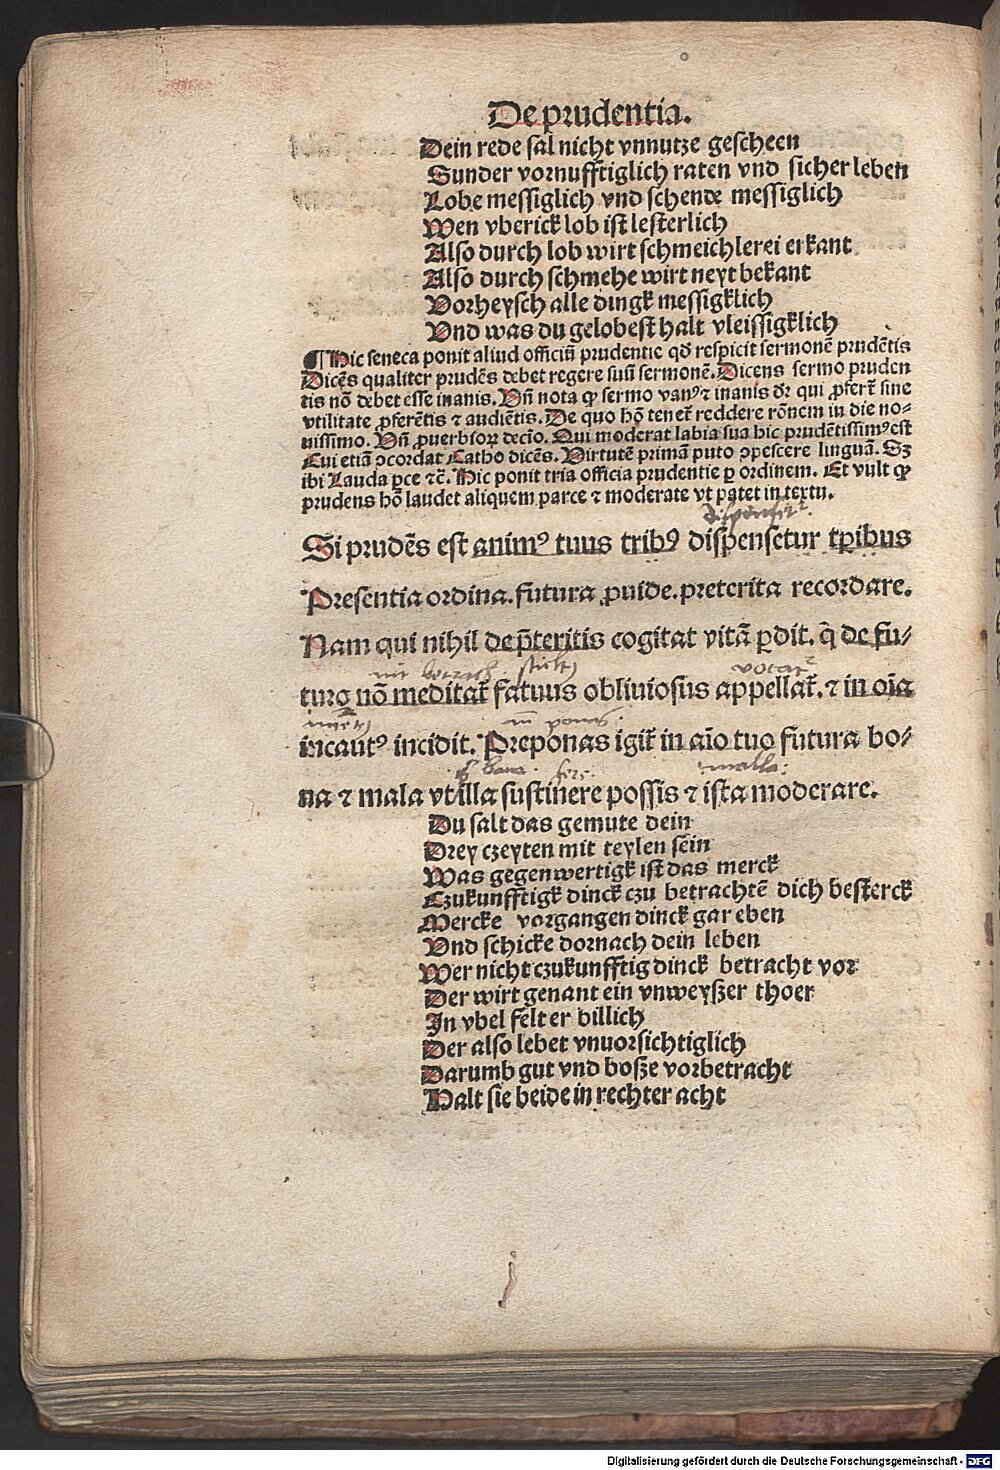 De prudentia.
Dein rede sal nicht vnnutze gescheen
Sunder vornufftiglich raten vnd sicher leben
Lobe messiglich vnd schende messiglich
Wen vberick lob ist lesterlich
Also durch lob wirt schmeichlerei erkant
Also durch schmehe wirt neyt bekant
Vorheysch alle dingk messigklich
Vnd was du gelobest halt vleissigklich
¶ Hic seneca ponit aliud officiũ prudentie qđ respicit sermonẽ prudẽtis
Dicẽs qualiter prudẽs debet regere suũ sermonẽ. Dicens sermo pruden
tis nõ debet esse inanis. Vñ nota ꝙ sermo vanꝰ ⁊ inanis dr̃ qui ꝓfert̃ sine
vtilitate ꝓferẽtis ⁊ audiẽtis. De quo hõ tenet̃ reddere rõnem in die no⸗
uissimo. Vñ ꝓuerbioꝝ decĩo. Qui moderat labia sua hic prudẽtissimꝰ est
Cui etiã ↄcordat Catho dicẽs. Virtutẽ primã puto ↄpescere linguã. Sꝫ
ibi Lauda ꝑce ⁊c̃. Hic ponit tria officia prudentie ꝑ ordinem. Et vult ꝙ
prudens hõ laudet aliquem parce ⁊ moderate vt patet in textu.
Si prudẽs est animꝰ tuus tribꝰ dispensetur tꝑibus
Presentia ordina. futura ꝓuide. preterita recordare.
Nam qui nihil de p̃teritis cogitat vitã ꝑdit. q̃ de fu⸗
turis nõ meditat̃ fatuus obliuiosus appellat̃. ⁊ in oĩa
votat̃
incautꝰ incidit. Preponas igit̃ in aĩo tuo futura bo⸗
bona
malla
na ⁊ mala vt illa sustinere possis ⁊ ista moderare.
Du salt das gemute dein
Drey czeyten mit teylen sein
Was gegenwertigk ist das merck
Czukunfftigk dinck czu betrachtẽ dich besterck
Mercke vorgangen dinck gar eben
Vnd schicke dornach dein leben
Wer nicht czukunfftig dinck betracht vor
Der wirt genant ein vnweyßer thoer
In vbel felt er billich
Der also lebet vnuorsichtiglich
Darumb gut vnd boße vorbetracht
Halt sie beide in rechter acht
Digitalisierung gefördert durch die Deutsche Forschungsgemeinschaft - DFG